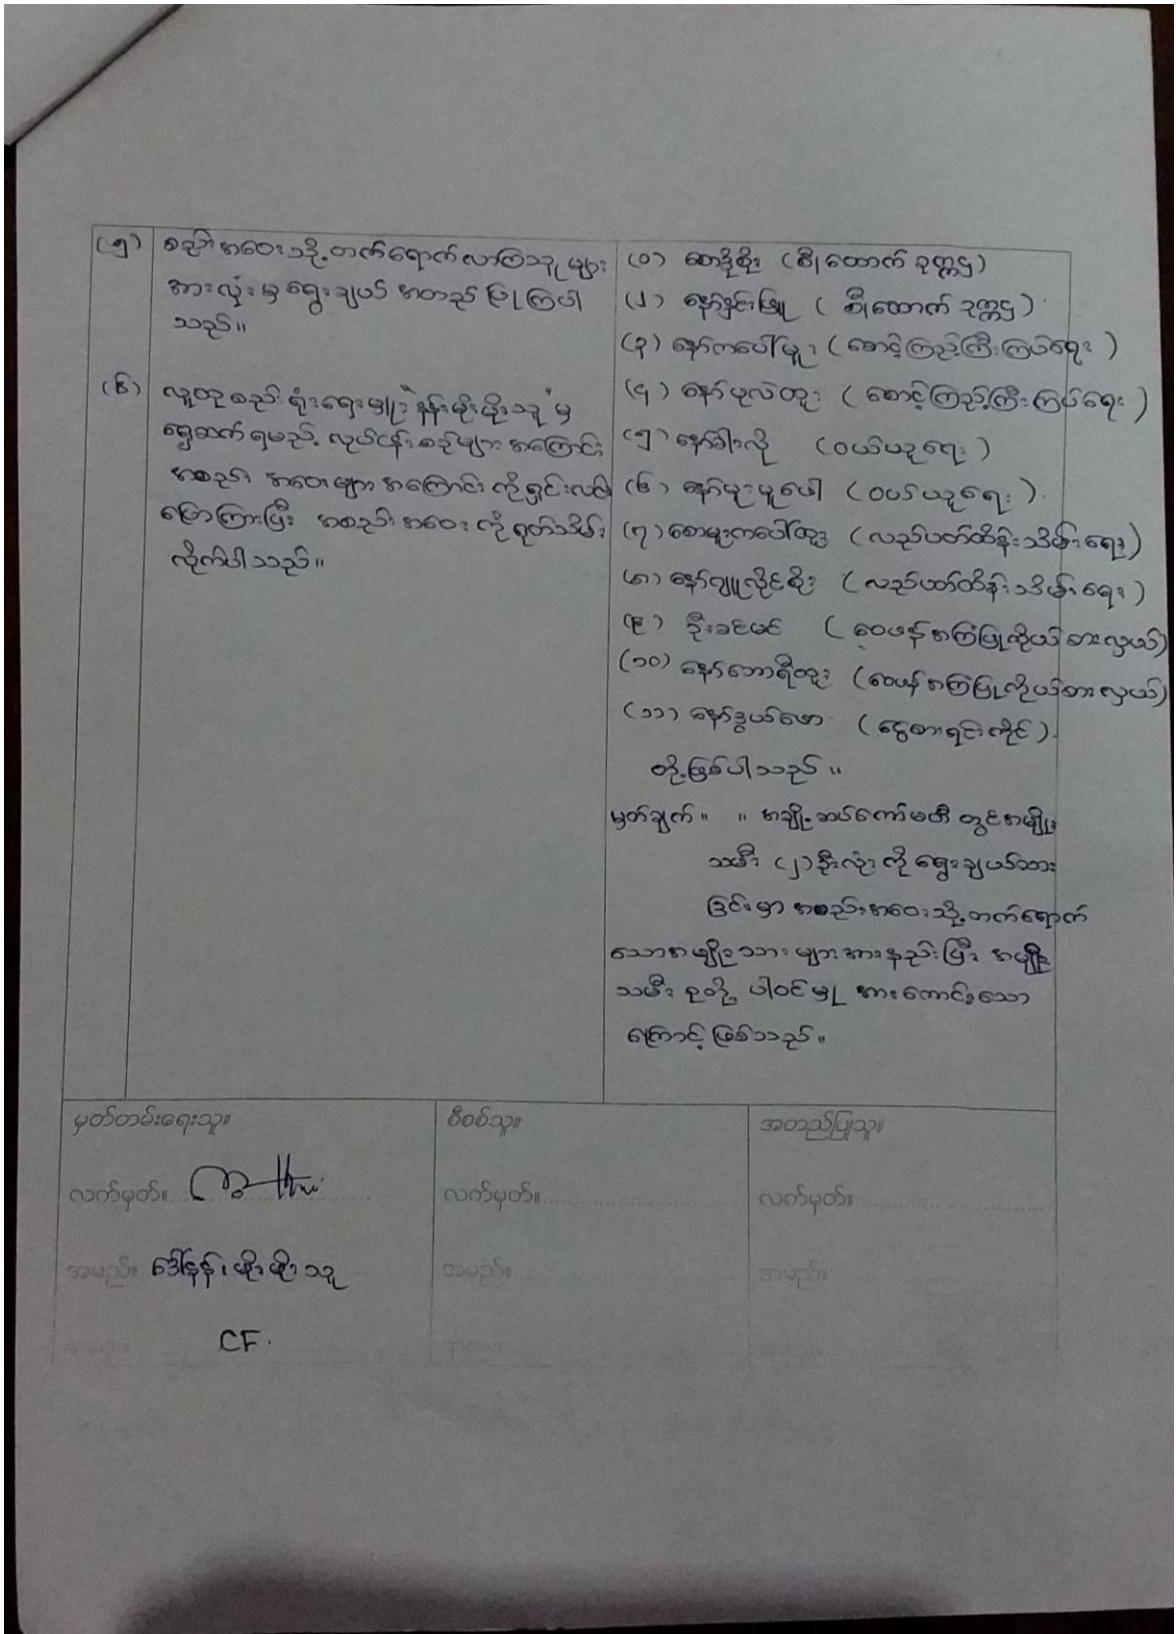 (၅) စည်းအဝေးသို့ တက်ရောက်လာကြသူများ
အားလုံးမှ ရွေးချယ် အတည်ပြုကြပါ
သည်။
(၆) လူထုစည်းရုံးရေးမှူး "နန်းမိုးမိုးသူ" မှ
ရှေ့ဆက်ရမည့် လုပ်ငန်းစဉ်များ အကြောင်း
အစည်း အဝေးများ အကြောင်း ကိုရှင်းလင်း
ပြောကြားပြီး အစည်းအဝေး ကိုရုတ်သိမ်း
လိုက်ပါသည်။
(၁) စောဒိုစိုး (စီုထောက် ဥက္ကဋ္ဌ)
(၂) နော်နှင်းဖြူ ( စီုထောက် ဥက္ကဋ္ဌ )
(၃) နော်ကပေါ်မူး ( စောင့်ကြည့်ကြီးကြပ်ရေး )
(၄) နော်မုလဲထူး ( စောင့်ကြည့်ကြီးကြပ်ရေး )
(၅) နော်ခါးလို (ဝယ်ယူရေး )
(၆) နော်မူးမူပေါ (ဝယ်ယူရေး )
(၇) စောမူးကပေါ်ထူး (လည်ပတ်ထိန်းသိမ်းရေး)
(၈) နော်ဂျူလိုင်စိုး ( လည်ပတ်ထိန်းသိမ်းရေး )
(၉) ဦးခင်မင် ( ဝေဖန်အကြံပြုကိုယ်စားလှယ်)
(၁၀) နော်ဘောရီထူး (ဝေဖန်အကြံပြုကိုယ်စားလှယ်)
(၁၁) နော်ဒွယ်ဖော (ငွေစာရင်းကိုင် )
တို့ဖြစ်ပါသည် ။
မှတ်ချက်။ ။ အချို့ဆပ်ကော်မတီ တွင်အမျိုး
သမီး (၂)ဦးလုံး ကို ရွေးချယ်ထား
ခြင်းမှာ အစည်းအဝေးသို့ တက်ရောက်
သောအမျိုးသားများအားနည်းပြီး အမျိုး
သမီး ၃တို့ ပါဝင်မှု အားကောင်းသော
ကြောင့် ဖြစ်သည်။
မှတ်တမ်းရေးသူ။ စီစစ်သူ။ အတည်ပြုသူ။
လက်မှတ်။ လက်မှတ်။ လက်မှတ်။
အမည်။ ဒေါ်နန်းမိုးမိုးသူ အမည်။ အမည်။
CF.